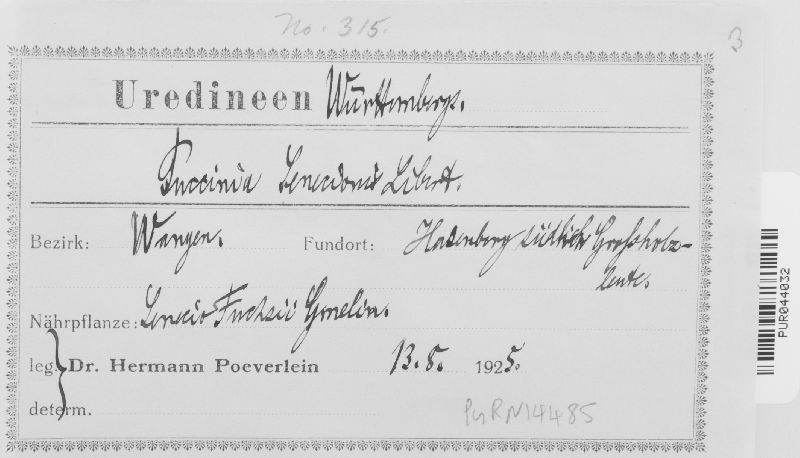 No. 315.
3
Uredineen Württembergs.
Puccinia Senecionis Libert.
Bezirk: Wangen. Fundort: Hasenberg südlich Großholz-
leute.
Nährpflanze: Senecio Fuchsii Gmelin.
leg. Dr. Hermann Poeverlein 13.8. 1925.
determ.
PUR N14485
PUR044032